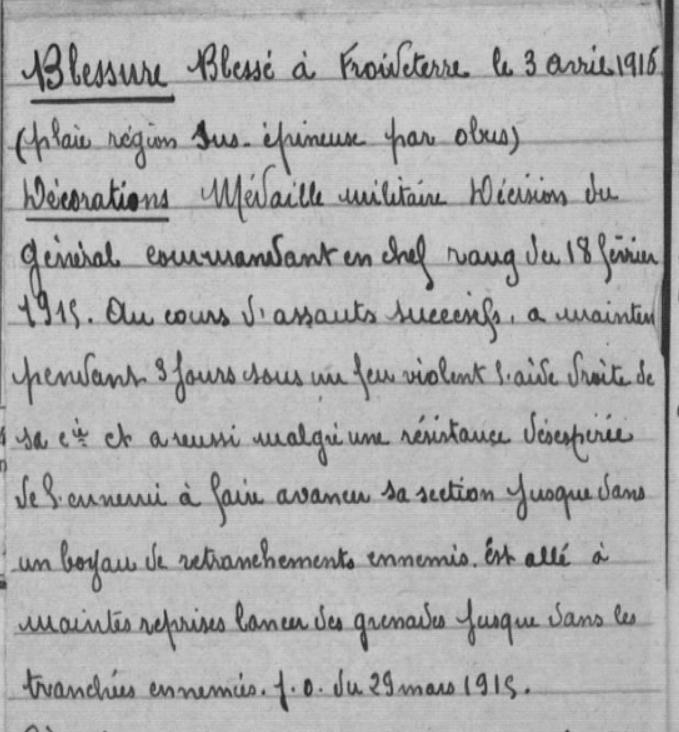 Blessure Blessé à Froideterre le 3 avril 1916
(plaie région sus-épineuse par obus)
Décorations Médaille militaire Décision du
général commandant en chef rang du 18 février
1915. Au cours d'assauts succesifs, a mainten
pendant 3 jours sous un feu violent l'aide droite de
sa cie et a reussi malgré une résistance désespérée
de l'ennemi à faire avancer sa section jusque dans
un boyau de retranchements ennemis. Est allé à
maintes reprises lancer des grenades jusque dans les
tranchées ennemies. J.O. du 29 mars 1915.